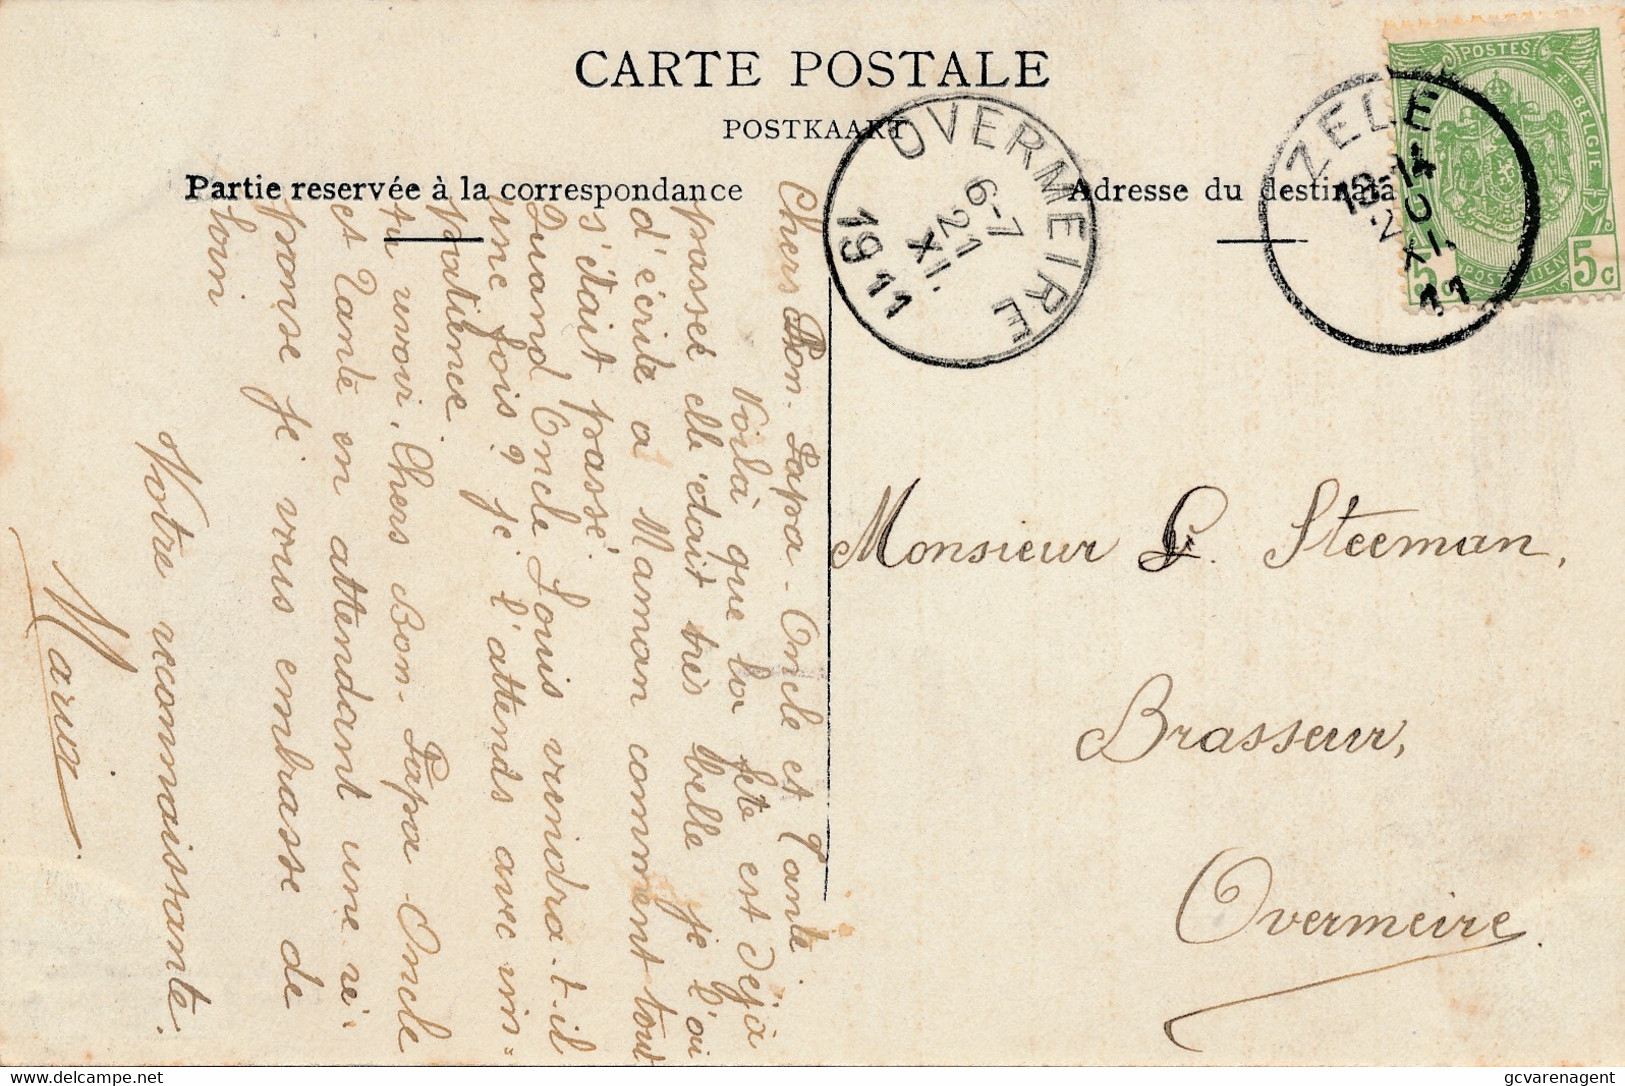 CARTE POSTALE
POSTKAART
Partie reservée à la correspondance
Adresse du destinata
OVERMEIRE
6-7
21
XII
1911
ZELE
13-14
20
XII
11
POSTES
BELGIE
POSTERIJEN
5 c
5 c
Chers Bon-Papa-Oncle et Tante
Voilà que la fête est déjà
passée elle était très belle je l'ai
d'écrite a Maman comment tout
s'était passé.
Quand Oncle Louis vriendra-t-il
une fois? je l'attends avec im-
patience
Au revoir, Chers Bon-Papa Oncle
et Tante en attendant une ré-
ponse je vous embrasse de
loin
Votre reconnaissante.
Maria
Monsieur L. Steeman,
Brasseur,
Overmeire.
gcvarenagent
delcampe.net